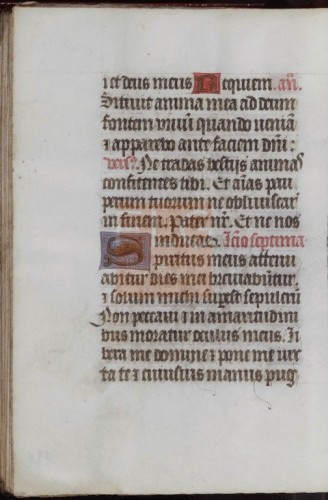 ⁊ et deus meus Requiem. añ.
Sitivit anima mea ad deum
fontem vivū quando veniā
⁊ apparebo ante faciem dñi:
vers? Ne tradas bestiis animas
confitentes tibi. Et aīas pau
perum tuorum ne obliviscar̄
in finem. Pater nr̄. Et ne nos
inducas. Lc̄io septima
Spiritus meus attenu
abitur dies mei breviabūtur
⁊ solum michi supest sepulcrū
Non peccavi ⁊ in amaritudini
bus moratur oculus meus. Li
bera me domine ⁊ pone me iux
ta te ⁊ cuiusvis manus pug